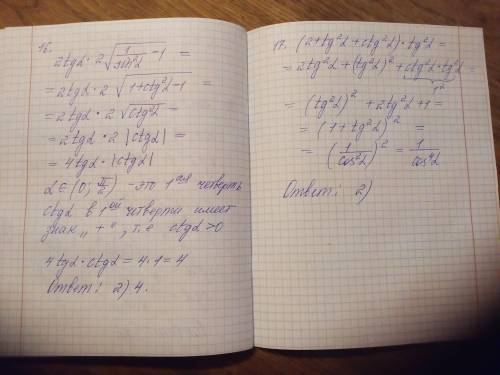 16.
2tgα · 2√(1/sin²α − 1) =
= 2tgα · 2√(1+ctg²α−1) =
= 2tgα · 2√(ctg²α) =
= 2tgα · 2|ctgα| =
= 4tgα · |ctgα|
α ∈ (0; π/2) - это 1ая четверть
ctgα в 1ой четверти имеет
знак „+“, т.е ctgα>0
4tgα · ctgα = 4·1 = 4
Ответ: 2) 4.
17. (2+tg²α+ctg²α)·tg²α =
= 2tg²α + (tg²α)² + ctg²α·tg²α =
1²
= (tg²α)² + 2tg²α + 1 =
= (1+tg²α)² =
= (1/cos²α)² = 1/cos⁴α
Ответ: 2)